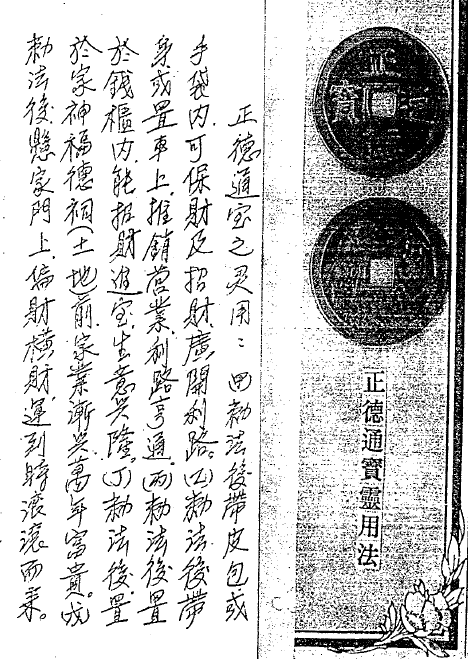 正
寶
正德通寶靈用法
正德通宝之灵用：(甲)勅法後帶皮包或
手袋内,可保財及招財,廣開利路。(乙)勅法後帶
身或置車上,推銷营業,利路亨通。(丙)勅法後置
於錢櫃内,能招財進宝,生意兴隆。(丁)勅法後,置
於家神福德祠(土地前,家業漸兴,萬年富貴。(戊)
勅法後,懸家門上,偏財横財,運到時滚滚而来。